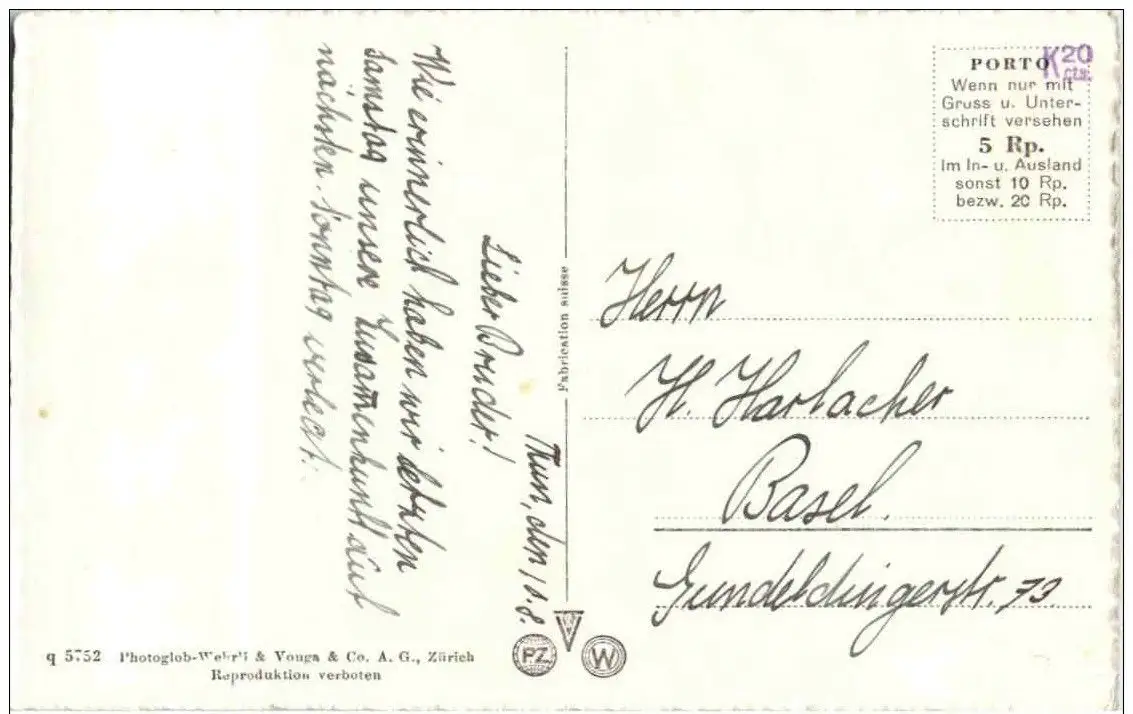 Thun, den 10.8.
Lieber Bruder!
Wie erinnerlich haben wir letzten
Samstag unsere Zusammenkunft auf
nächsten Sonntag verlegt.
PORTO
Wenn nur mit
Gruss u. Unter-
schrift versehen
5 Rp.
Im In- u. Ausland
sonst 10 Rp.
bezw. 20 Rp.
K20
cts.
Herrn
H. Harlacher
Basel.
Gundeldingerstr. 73
Fabrication suisse
PZ
W
q 5752 Photoglob-Wehrli & Vouga & Co. A. G., Zürich
Reproduktion verboten